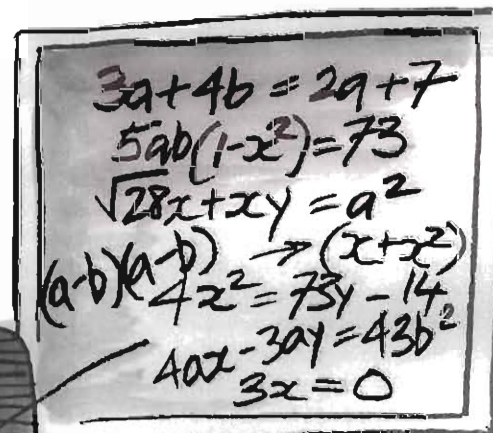 3a+4b = 2a+7
5ab(1-x²)=73
√28x+xy = a²
(a-b)(a-b) → (x+x²)
4x² = 73y-14
4ax-3ay=43b²
3x=0